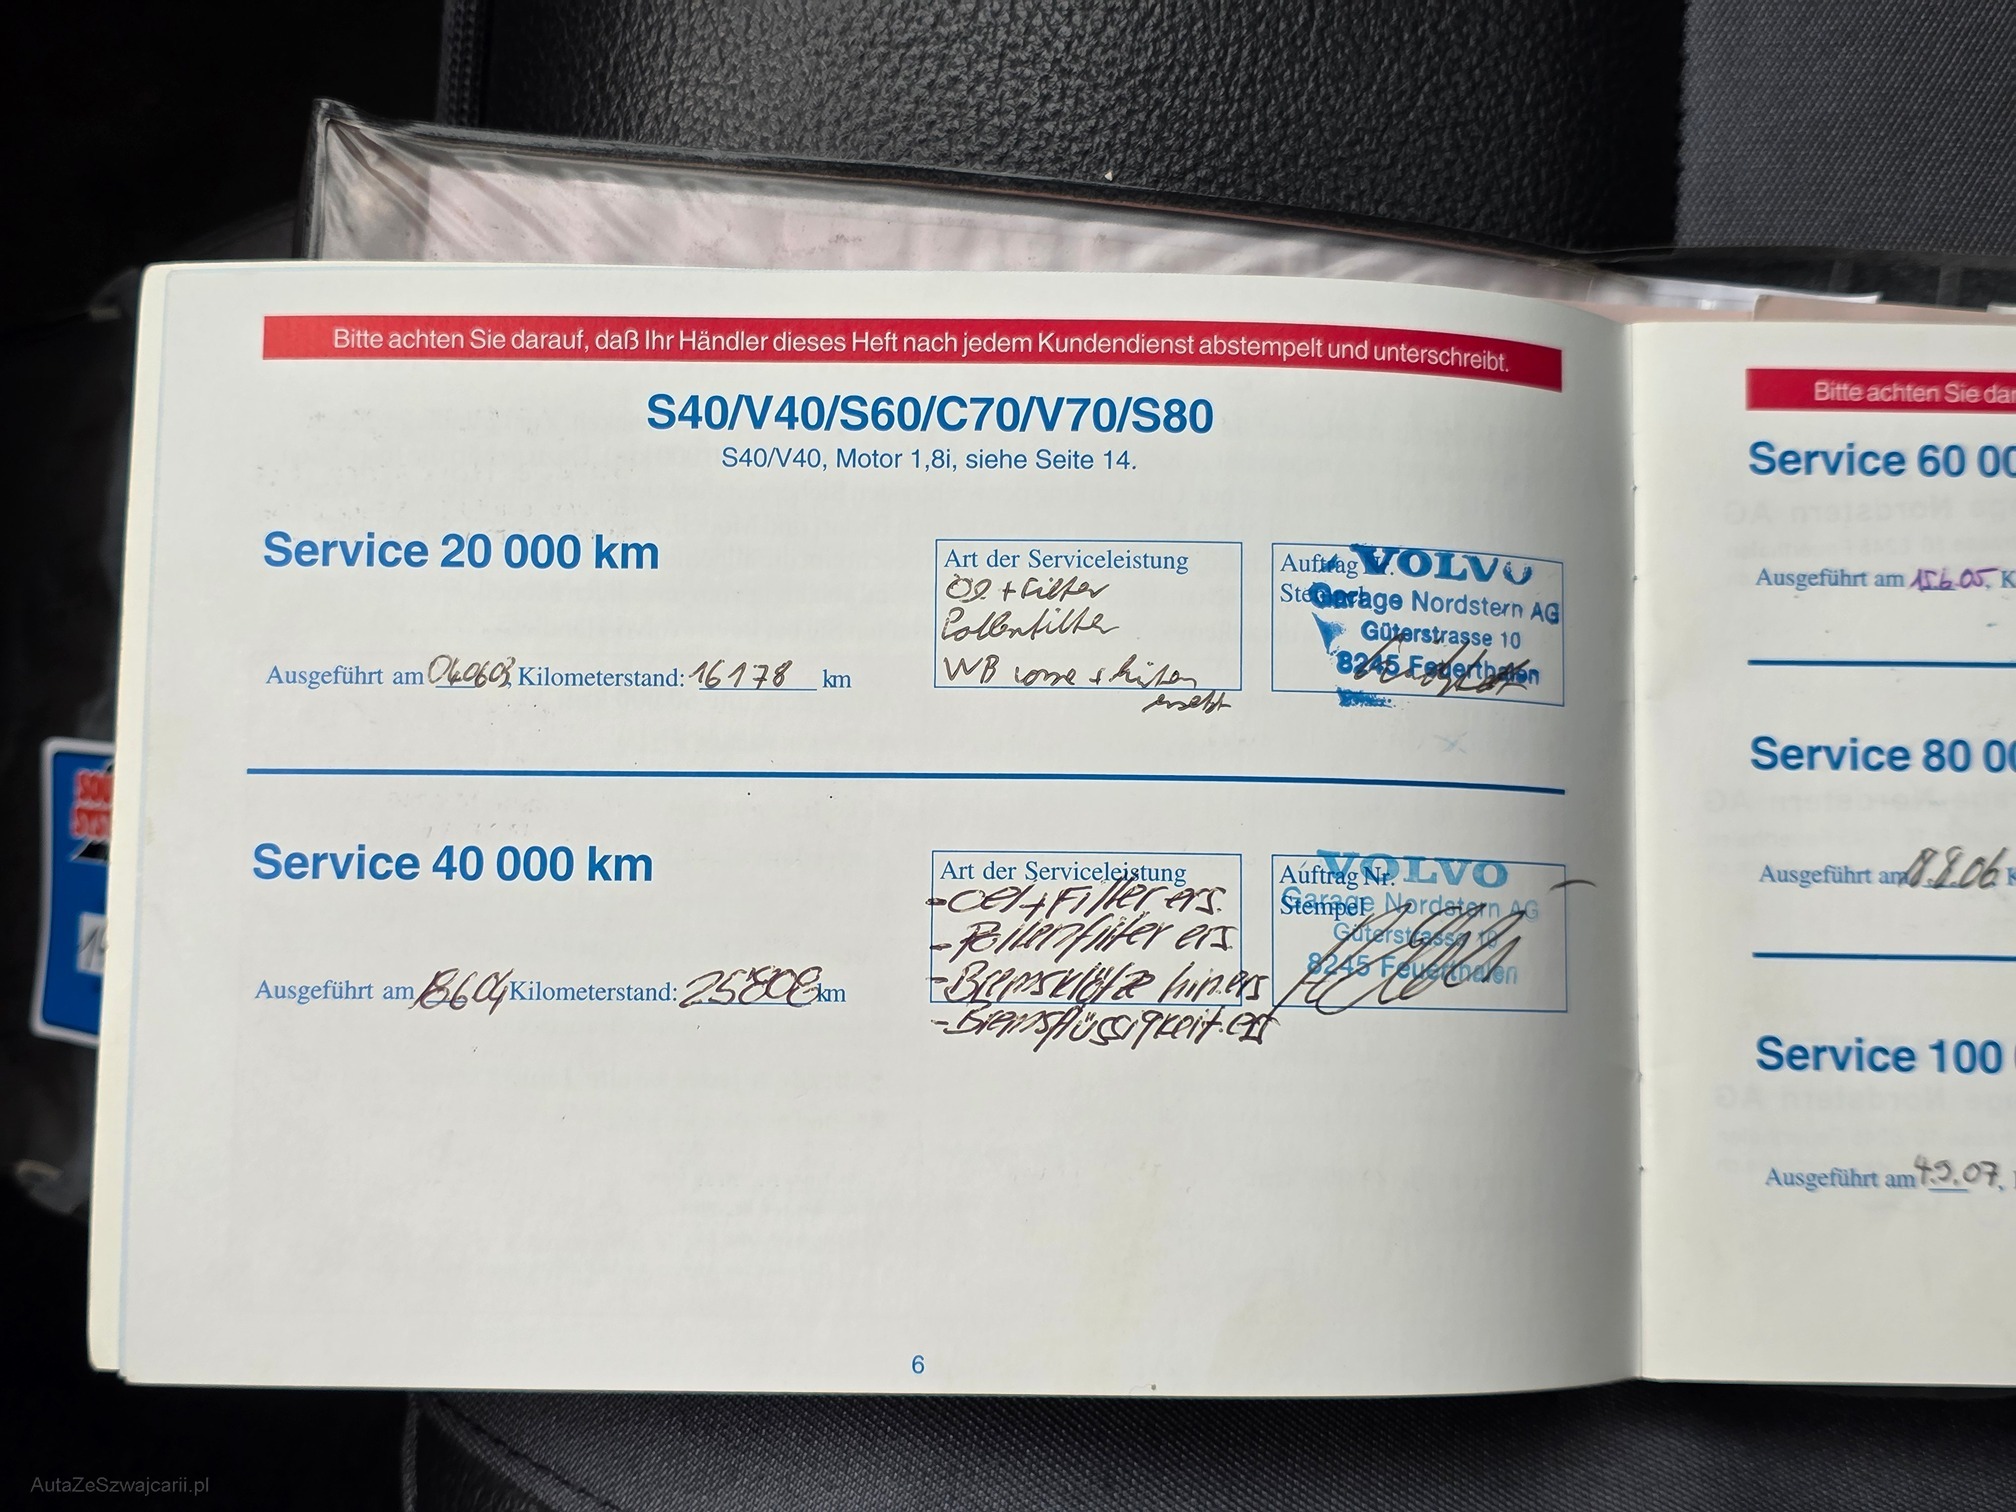 Bitte achten Sie darauf, daß Ihr Händler dieses Heft nach jedem Kundendienst abstempelt und unterschreibt.
S40/V40/S60/C70/V70/S80
S40/V40, Motor 1,8i, siehe Seite 14.
Service 20 000 km
Ausgeführt am 040603, Kilometerstand: 16178 km
Art der Serviceleistung
Öl + Filter
Pollenfilter
WB vorne + hinten
ersetzt
Auftrag Nr.
VOLVO
Garage Nordstern AG
Güterstrasse 10
8245 Feuerthalen
Service 40 000 km
Ausgeführt am 18604 Kilometerstand: 25808 km
Art der Serviceleistung
- Oel + Filter ers.
- Pollenfilter ers.
- Bremsklötze hin. ers
- Bremsflüssigkeit. ers
Auftrag Nr.
Stempel
VOLVO
Garage Nordstern AG
Güterstrasse 10
8245 Feuerthalen
6
Bitte achten Sie dar
Service 60 00
Ausgeführt am 15.6.05, K
Service 80 00
Ausgeführt am 18.8.06 K
Service 100
Ausgeführt am 4.9.07,
AutaZeSzwajcarii.pl